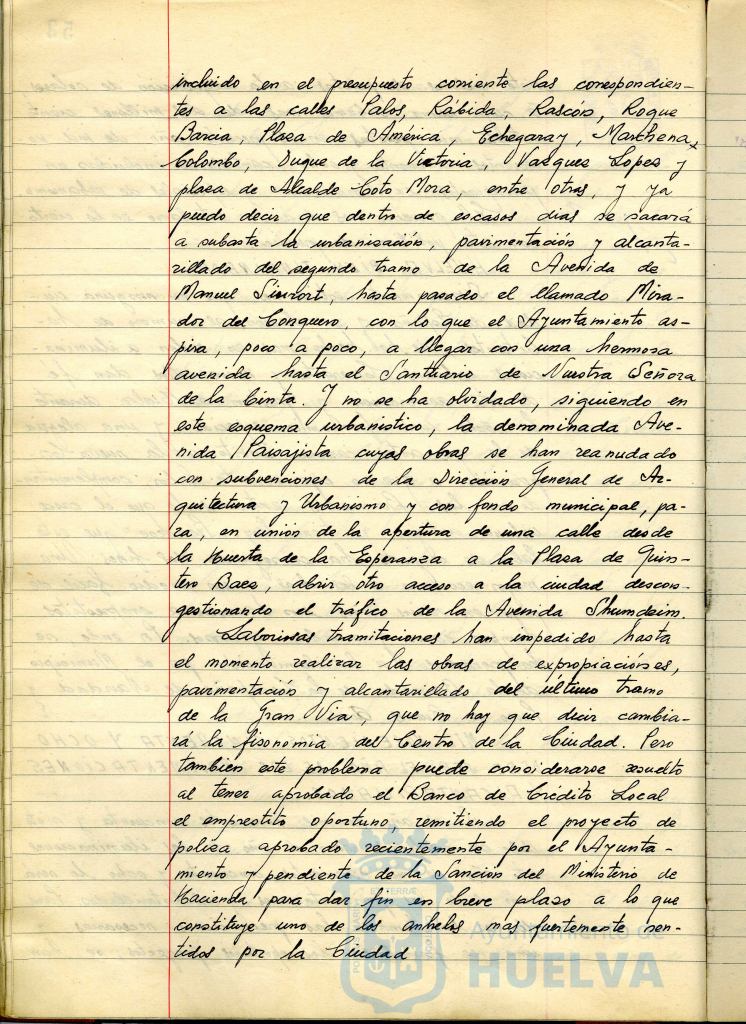 incluido en el presupuesto corriente las correspondien-
tes a las calles Palos, Rábida, Rascón, Roque
Barcia, Plaza de América, Echegaray, Marchena
Colombo, Duque de la Victoria, Vazquez Lopez y
plaza de Alcalde Coto Mora, entre otras, y ya
puedo decir que dentro de escasos dias se sacará
a subasta la urbanización, pavimentación y alcanta-
rillado del segundo tramo de la Avenida de
Manuel Siurort, hasta pasado el llamado Mira-
dor del Conquero, con lo que el Ayuntamiento as-
pira, poco a poco, a llegar con una hermosa
avenida hasta el Santuario de Nuestra Señora
de la Cinta. Y no se ha olvidado, siguiendo en
este esquema urbanistico, la denominada Ave-
nida Paisajista cuyas obras se han reanudado
con subvenciones de la Dirección General de Ar-
quitectura y Urbanismo y con fondo municipal, pa-
ra, en unión de la apertura de una calle desde
la Huerta de la Esperanza a la Plaza de Quin-
tero Baez, abrir otro acceso a la ciudad descon-
gestionando el tráfico de la Avenida Shumdeim.
Laboriosas tramitaciones han impedido hasta
el momento realizar las obras de expropiaciónes,
pavimentación y alcantarillado del último tramo
de la Gran Via, que no hay que decir cambia-
rá la fisonomia del Centro de la Ciudad. Pero
tambien este problema puede considerarse resuelto
al tener aprobado el Banco de Crédito Local
el emprestito oportuno, remitiendo el proyecto de
poliza aprobado recientemente por el Ayunta-
miento y pendiente de la Sanción del Ministerio de
Hacienda para dar fin en breve plazo a lo que
constituye uno de los anhelos mas fuertemente sen-
tidos por la Ciudad
Ayuntamiento de
HUELVA